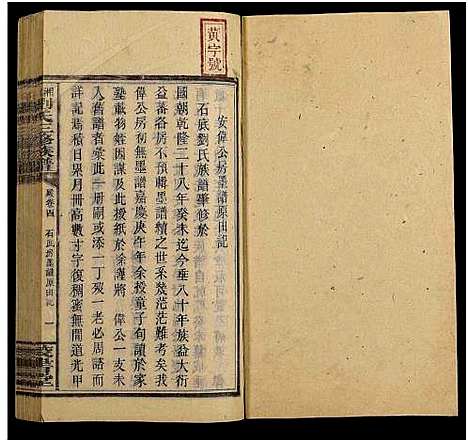 黃字號
安偉公房墨譜原由記
石底劉氏族譜肇修於
國朝乾隆二十八年癸未迄今垂八十年族益大衍
益蕃各房不預輯墨譜續之世系茫茫雖考矣我
偉公房初無墨譜嘉慶庚午年余授童子句讀於家
塾載物姪因謀及此授紙於余謹將 偉公一支未
入舊譜者彙此一冊嗣或添一丁歿一老必周語而
詳記焉積日累月冊高數寸字復稠蜜無間道光甲
湘劉氏三修族譜
卷四
石底房墨譜原由記
一